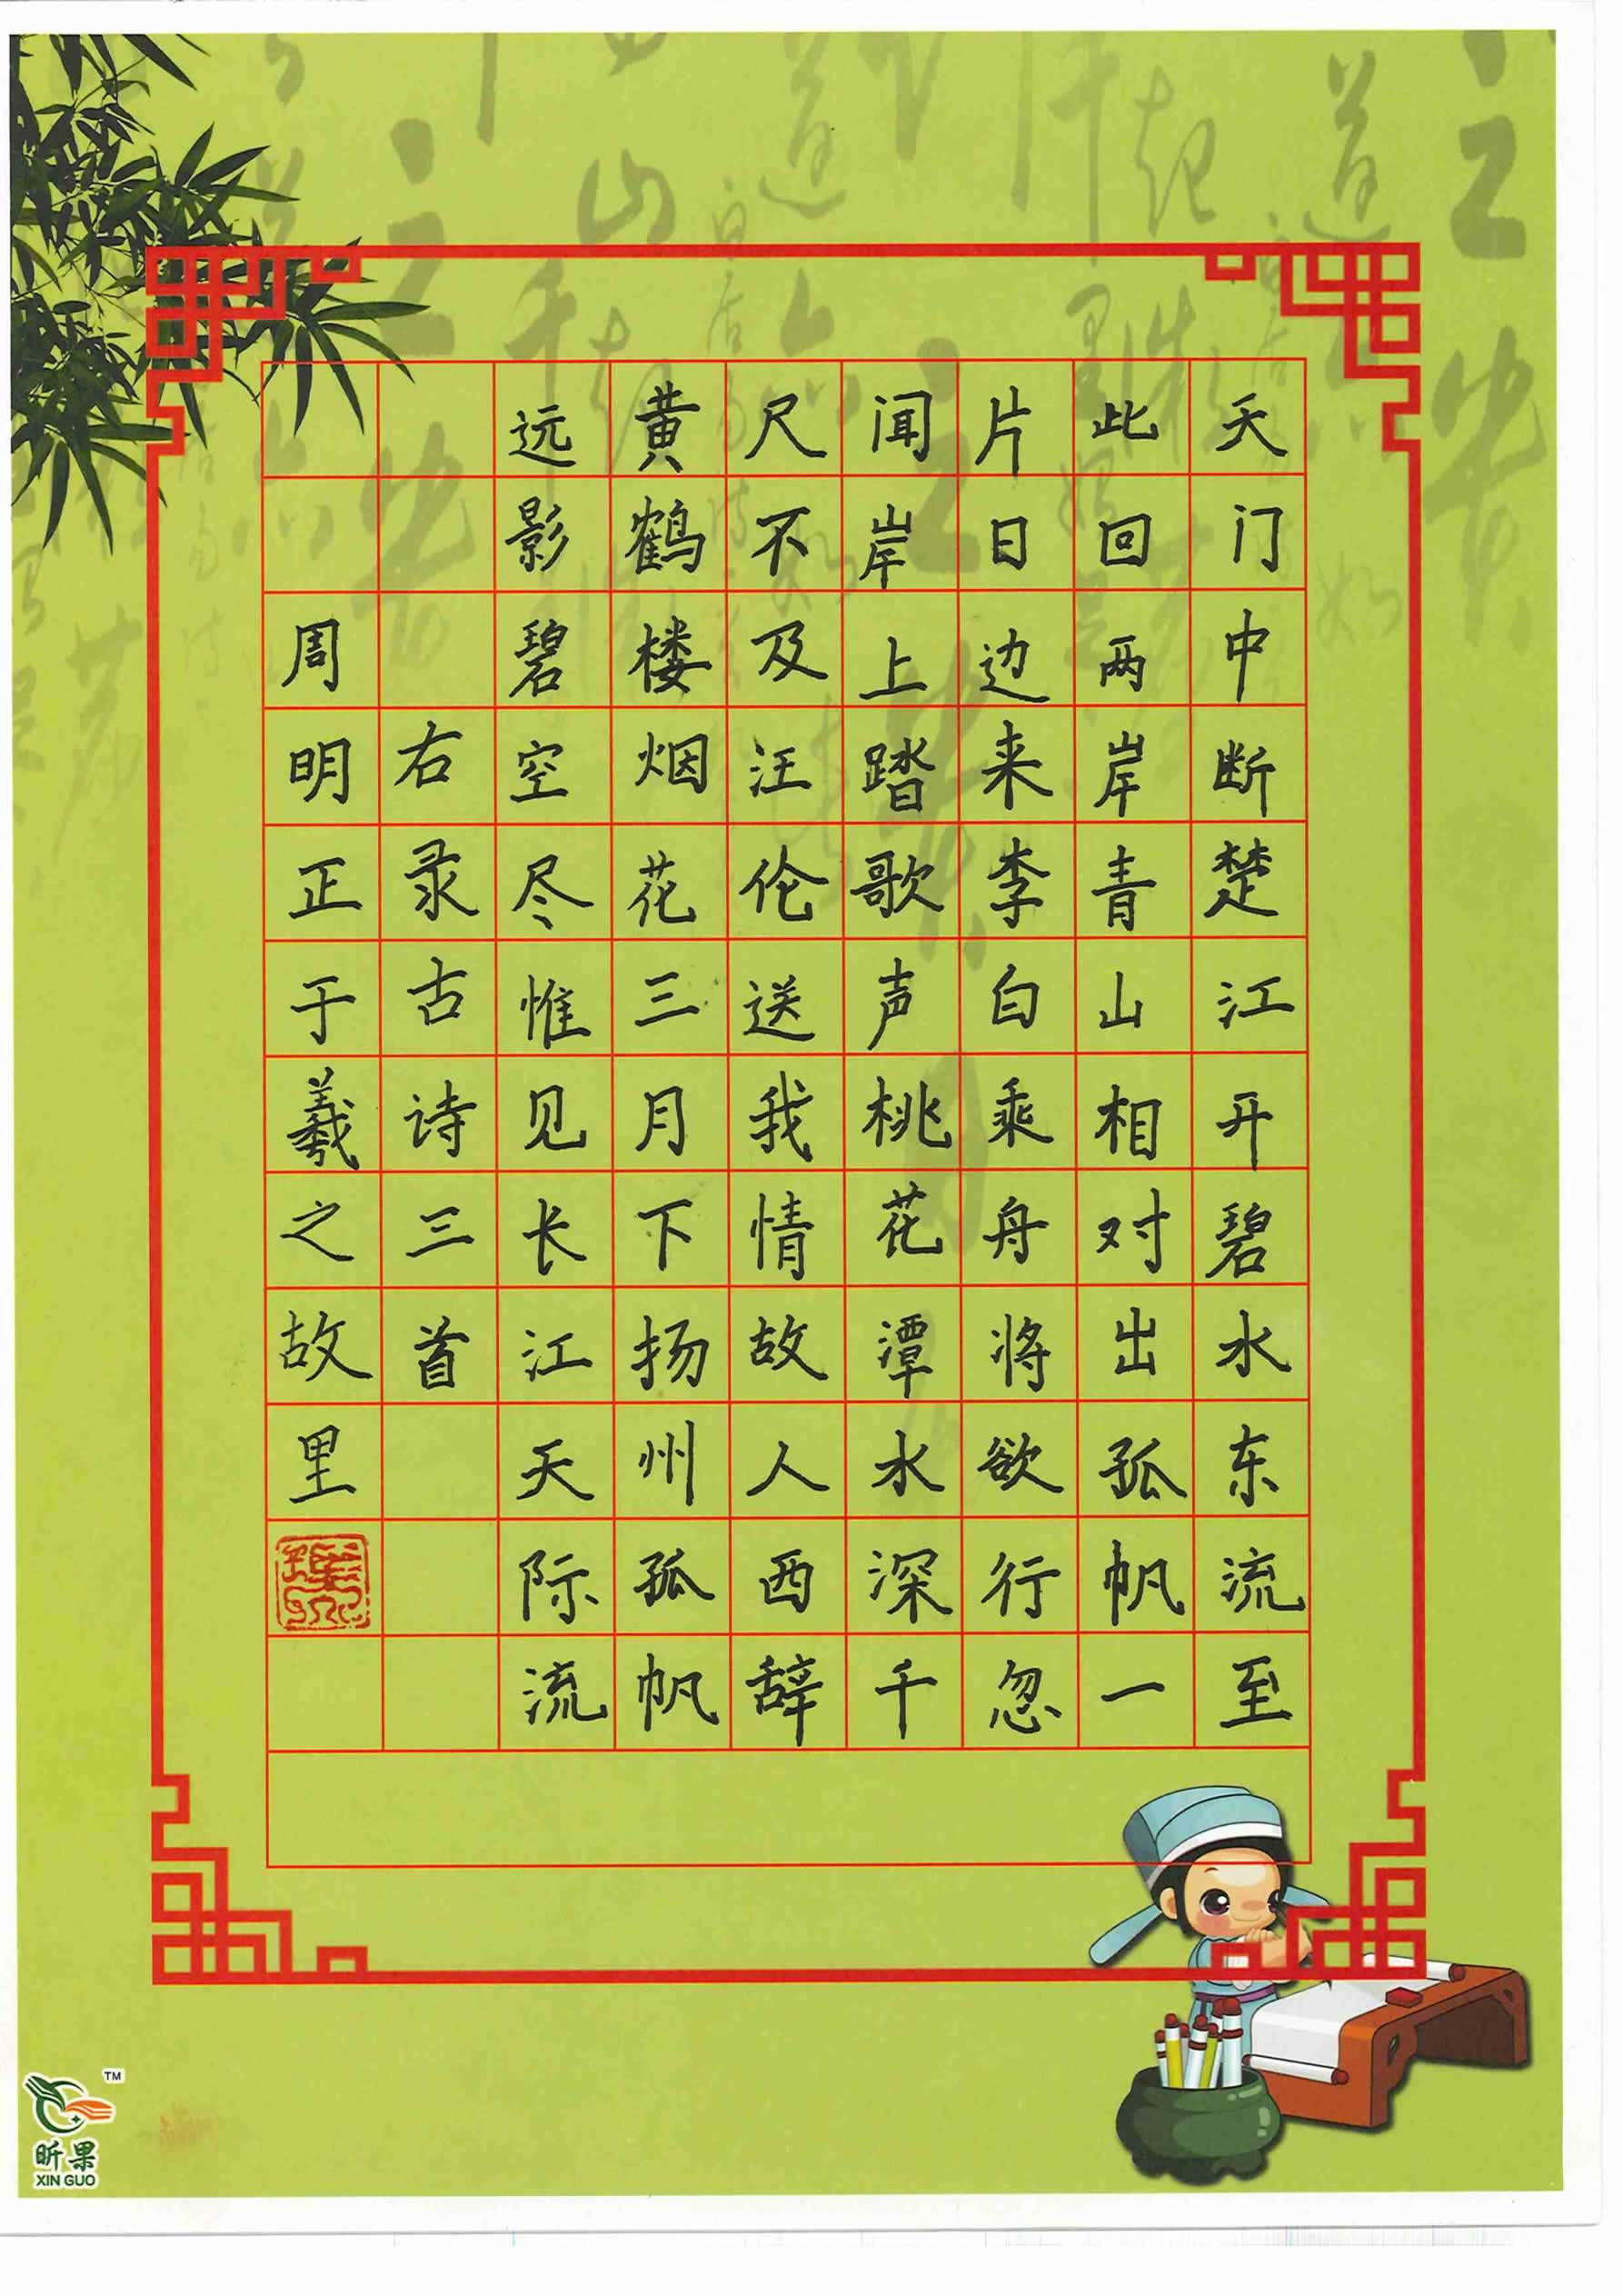 天门中断楚江开碧水东流至
此回两岸青山相对出孤帆一
片日边来李白乘舟将欲行忽
闻岸上踏歌声桃花潭水深千
尺不及汪伦送我情故人西辞
黄鹤楼烟花三月下扬州孤帆
远影碧空尽惟见长江天际流
右录古诗三首
周明正于羲之故里
TM
昕果
XIN GUO